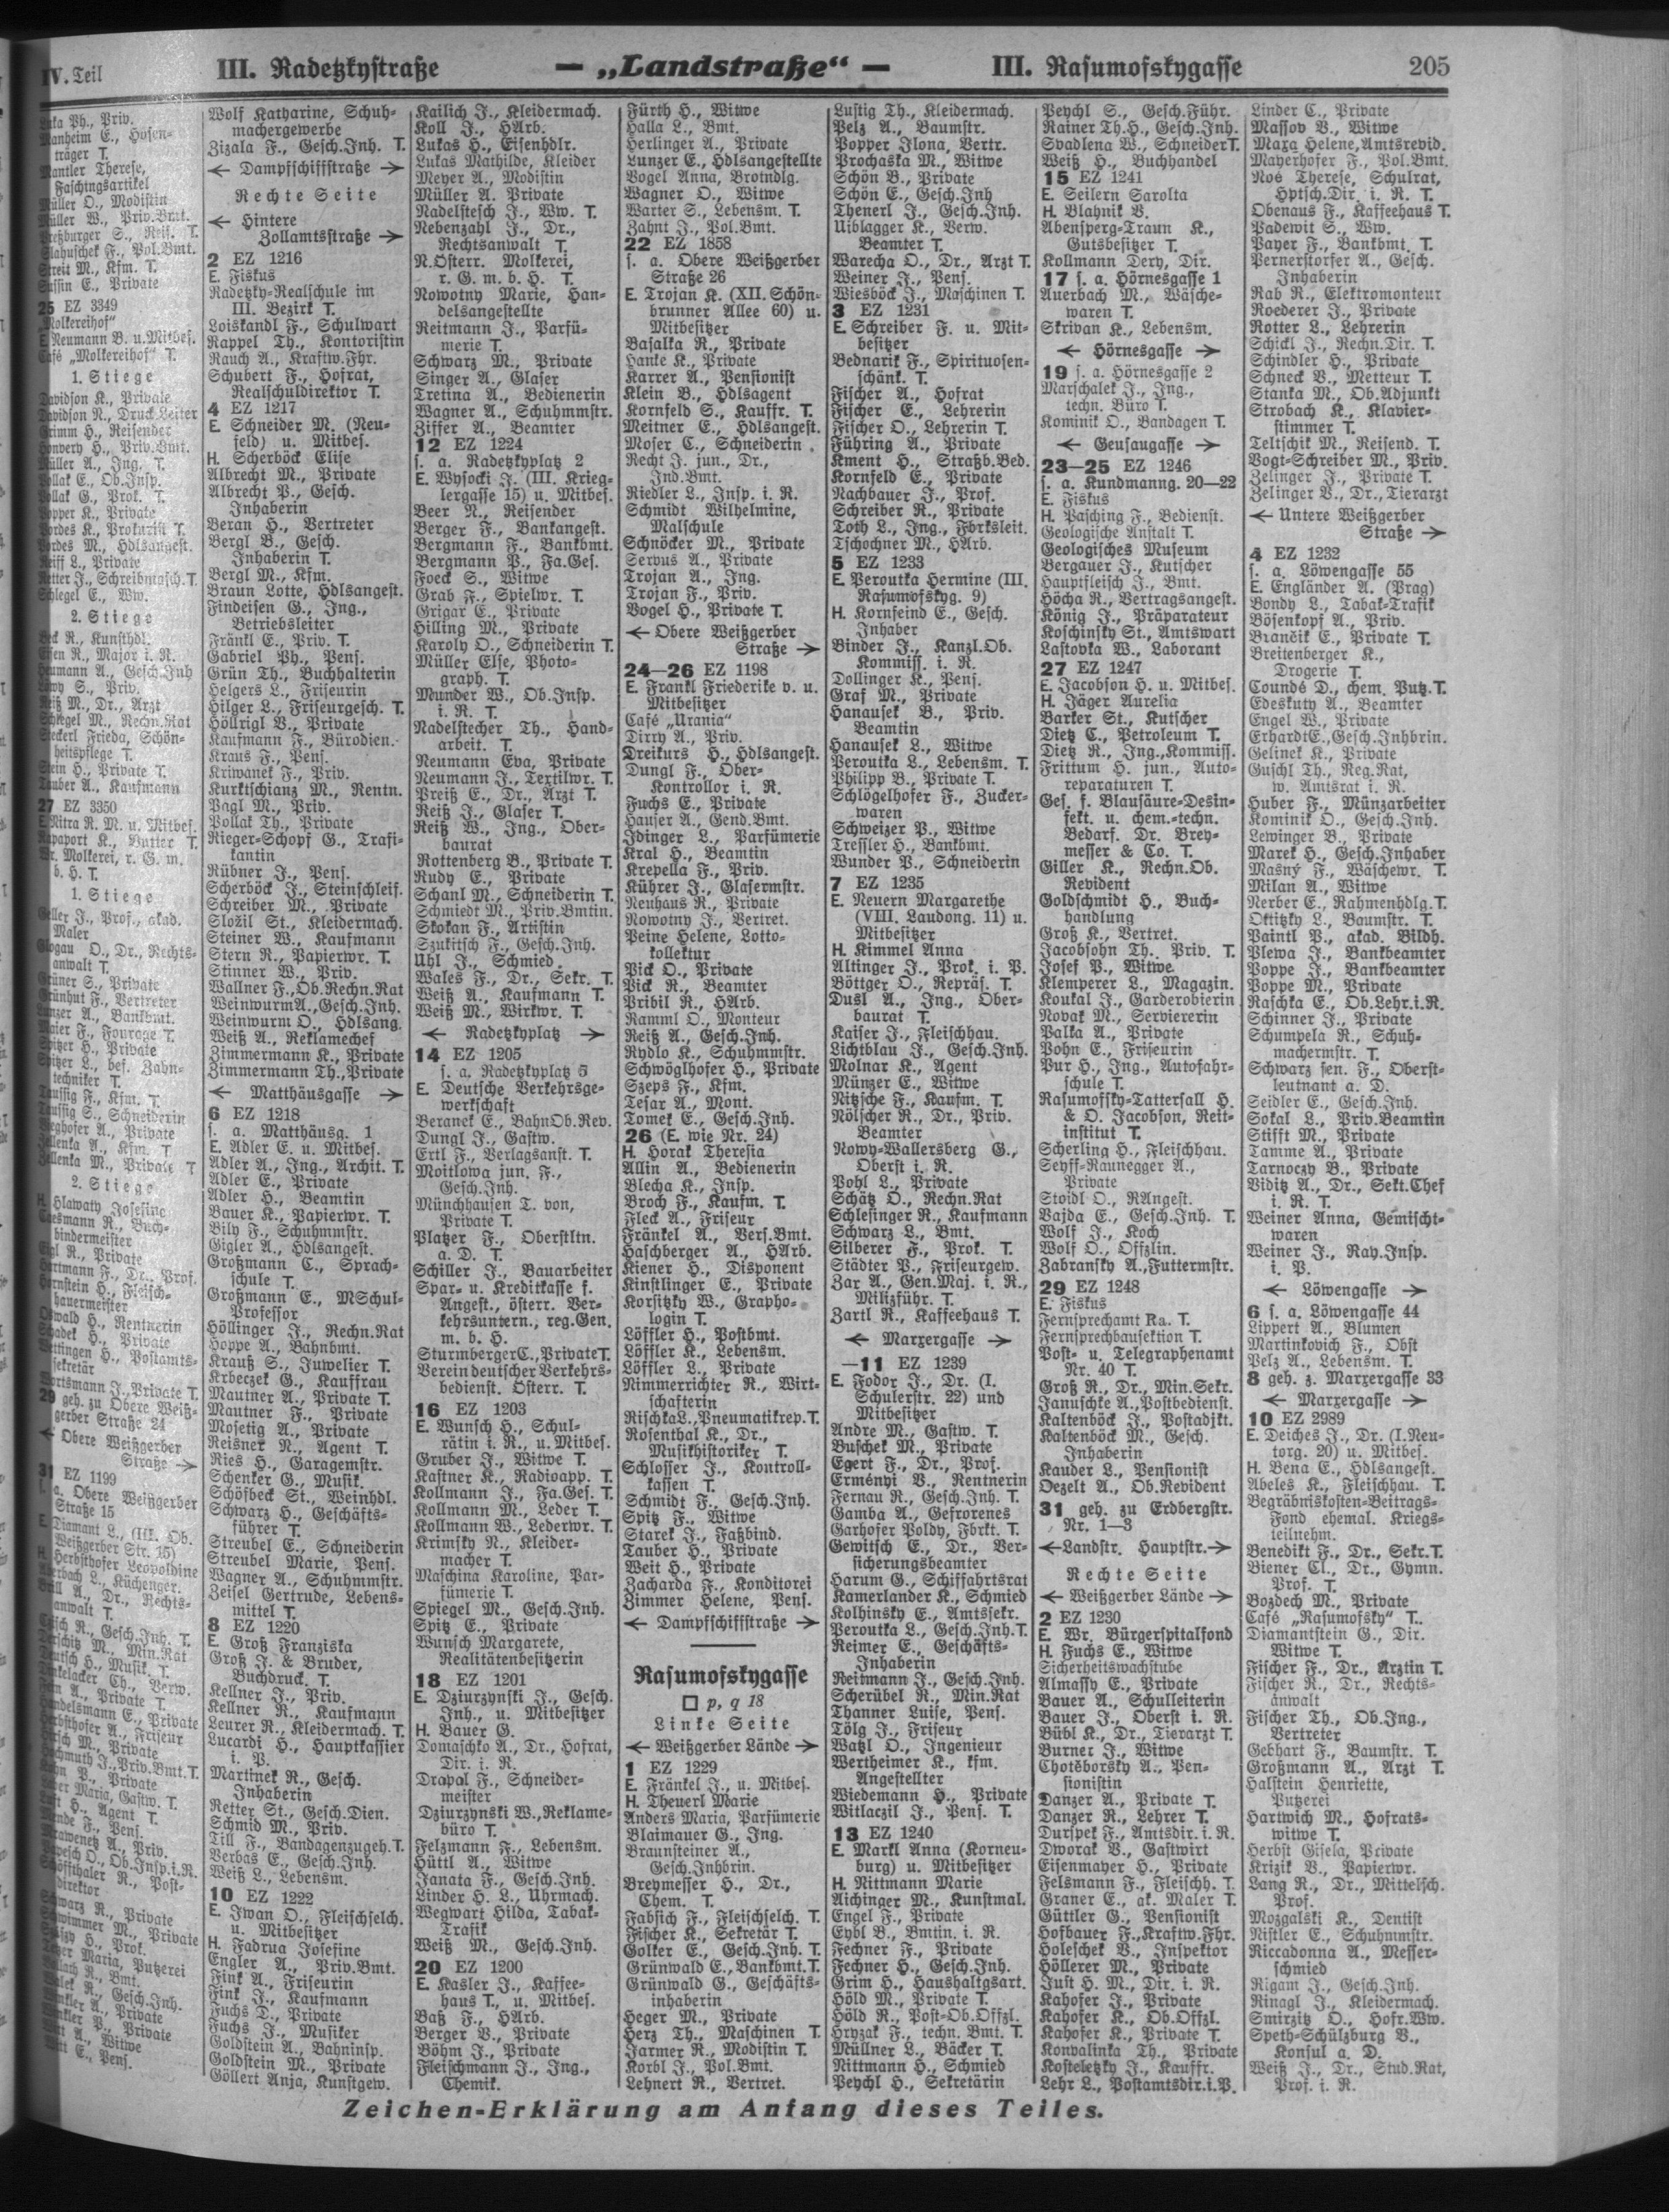 IV. Teil
III. Radetzkystraße
— „Landstraße“ —
III. Rasumofskygasse
205
Ph., Priv.
E., Hosen-
träger T.
Mantler Therese,
Faschingsartikel
Müller O., Modistin
Müller W., Priv.Bmt.
Preßburger S., Reis. T.
Slahuschek F., Pol.Bmt.
Streit M., Kfm. T.
E., Private
25 EZ 3349
„Molkereihof“
E. Neumann B. u. Mitbes.
Café „Molkereihof“ T.
1. Stiege
Davidson K., Private
Davidson R., Druck.Leiter
Grimm H., Reisender
H., Priv.Bmt.
Müller A., Ing. T.
Pollak E., Ob.Insp.
Pollak G., Prok. T.
Popper K., Private
Pordes K., Prokurist T.
Pordes M., Hdlsangest.
Reiff L., Private
Retter J., Schreibmasch. T.
Schlegel E., Ww.
2. Stiege
Beck R., Kunsthdl.
Eisen R., Major i. R.
A., Gesch.Inh
S., Priv.
Reiß M., Dr., Arzt
Schlegel M., Rechn.Rat
Frieda, Schön-
heitspflege T.
Stein H., Private T.
Tauber A., Kaufmann
27 EZ 3350
E. Nitra R. M. u. Mitbes.
Rapaport K., Butter T.
Wr. Molkerei, r. G. m.
b. H. T.
1. Stiege
Geller J., Prof., akad.
Maler
Glogau O., Dr., Rechts-
anwalt T.
Grüner S., Private
Grünhut F., Vertreter
A., Bankbmt.
F., Fourage T.
Spitzer H., Private
Spitzer L., bef. Zahn-
techniker T.
Taussig F., Kfm. T.
Taussig S., Schneiderin
A., Private
A., Kfm. T
M., Private T
2. Stiege
H. Hlawaty Josefine
R., Buch-
bindermeister
R., Private
F., Dr., Prof.
H., Fleisch-
hauermeister
H., Rentnerin
H., Private
H., Postamts-
sekretär
J., Private T.
29 geh. zu Obere Weiß-
gerber Straße 24
← Obere Weißgerber
Straße →
31 EZ 1199
s. a. Obere Weißgerber
Straße 15
E. Diamant L., (III. Ob.
Weißgerber Str. 15)
H. Herbsthofer Leopoldine
L., Küchenger.
A., Dr., Rechts-
anwalt T.
R., Gesch.Inh. T.
M., Min.Rat
H., Musik. T.
Ch., Verw.
A., Private T.
E., Private
A., Friseur
M., Private
J., Priv.Bmt. T.
P., Private
Maria, Gastw. T.
H., Agent T.
F., Pens.
A., Priv.
O., Ob.Insp.i.R.
R., Post-
direktor
R., Private
M., Private
H., Prok.
Maria, Putzerei
R., Bmt.
R., Gesch.Inh.
A., Private
P., Private
A., Witwe
E., Pens.
Wolf Katharine, Schuh-
machergewerbe
Zizala F., Gesch.Inh. T.
← Dampfschiffstraße →
Rechte Seite
← Hintere
Zollamtsstraße →
2 EZ 1216
E. Fiskus
Radetzky-Realschule im
III. Bezirk T.
Loiskandl F., Schulwart
Rappel Th., Kontoristin
Rauch A., Kraftw.Fhr.
Schubert F., Hofrat,
Realschuldirektor T.
4 EZ 1217
E. Schneider M. (Neu-
feld) u. Mitbes.
H. Scherböck Elise
Albrecht M., Private
Albrecht P., Gesch.
Inhaberin
Beran H., Vertreter
Bergl B., Gesch.
Inhaberin T.
Bergl M., Kfm.
Braun Lotte, Hdlsangest.
Findeisen G., Ing.,
Betriebsleiter
Fränkl E., Priv. T.
Gabriel Ph., Pens.
Grün Th., Buchhalterin
Helgers L., Friseurin
Hilger L., Friseurgesch. T.
Höllrigl B., Private
Kaufmann F., Bürodien.
Kraus F., Pens.
Kriwanek F., Priv.
Kurktschianz M., Rentn.
Pagl M., Priv.
Pollak Th., Private
Rieger-Schopf G., Trafi-
kantin
Rübner J., Pens.
Scherböck J., Steinschleif.
Schreiber M., Private
Složil St., Kleidermach.
Steiner W., Kaufmann
Stern R., Papierwr. T.
Stinner W., Priv.
Wallner F., Ob.Rechn.Rat
Weinwurm A., Gesch.Inh.
Weinwurm O., Hdlsang.
Weiß A., Reklamechef
Zimmermann K., Private
Zimmermann Th., Private
← Matthäusgasse →
6 EZ 1218
s. a. Matthäusg. 1
E. Adler E. u. Mitbes.
Adler A., Ing., Archit. T.
Adler E., Private
Adler H., Beamtin
Bauer K., Papierwr. T.
Bily F., Schuhmmstr.
Gigler A., Hdlsangest.
Großmann C., Sprach-
schule T.
Großmann E., MSchul-
Professor
Höllinger J., Rechn.Rat
Hoppe A., Bahnbmt.
Krauß S., Juwelier T.
Krbeczek G., Kauffrau
Mautner A., Private T.
Mautner F., Private
Mosetig A., Private
Reisner N., Agent T.
Ries H., Garagemstr.
Schenker G., Musik.
Schöfbeck St., Weinhdl.
Schwarz H., Geschäfts-
führer T.
Streubel E., Schneiderin
Streubel Marie, Pens.
Wagner A., Schuhmmstr.
Zeisel Gertrude, Lebens-
mittel T.
8 EZ 1220
E. Groß Franziska
Groß J. & Bruder,
Buchdruck. T.
Kellner J., Priv.
Kellner R., Kaufmann
Leurer R., Kleidermach. T.
Lucardi H., Hauptkassier
i. P.
Martinek R., Gesch.
Inhaberin
Retter St., Gesch.Dien.
Schmid M., Priv.
Till F., Bandagenzugeh. T.
Verbas E., Gesch.Inh.
Weiß L., Lebensm.
10 EZ 1222
E. Iwan O., Fleischselch.
u. Mitbesitzer
H. Fadrua Josefine
Engler A., Priv.Bmt.
Fink A., Friseurin
Fink J., Kaufmann
Fuchs D., Private
Fuchs J., Musiker
Goldstein A., Bahninsp.
Goldstein M., Private
Göllert Anja, Kunstgew.
Kailich J., Kleidermach.
Koll J., HArb.
Lukas H., Eisenhdlr.
Lukas Mathilde, Kleider
Meyer A., Modistin
Müller A. Private
Nadelstesch J., Ww. T.
Nebenzahl J., Dr.,
Rechtsanwalt T.
N.Österr. Molkerei,
r. G. m. b. H. T.
Nowotny Marie, Han-
delsangestellte
Reitmann J., Parfü-
merie T.
Schwarz M., Private
Singer A., Glaser
Tretina A., Bedienerin
Wagner A., Schuhmmstr.
Ziffer A., Beamter
12 EZ 1224
s. a. Radetzkyplatz 2
E. Wysocki J. (III. Krieg-
lergasse 15) u. Mitbes.
Beer N., Reisender
Berger F., Bankangest.
Bergmann F., Bankbmt.
Bergmann P., Fa.Ges.
Foeck S., Witwe
Grab F., Spielwr. T.
Grigar E., Private
Hilling M., Private
Karoly O., Schneiderin T.
Müller Else, Photo-
graph. T.
Munder W., Ob.Insp.
i. R. T.
Nadelstecher Th., Hand-
arbeit. T.
Neumann Eva, Private
Neumann J., Textilwr. T.
Preiß E., Dr., Arzt T.
Reiß J., Glaser T.
Reiß W., Ing., Ober-
baurat
Rottenberg B., Private T.
Rudy E., Private
Schanl M., Schneiderin T.
Schmiedt M., Priv.Bmtin.
Skokan F., Artistin
Szukitsch F., Gesch.Inh.
Uhl J., Schmied
Wales F., Dr., Sekr. T.
Weiß A., Kaufmann T.
Weiß M., Wirkwr. T.
← Radetzkyplatz →
14 EZ 1205
s. a. Radetzkyplatz 5
E. Deutsche Verkehrsge-
werkschaft
Beranek E., BahnOb.Rev.
Dungl J., Gastw.
Ertl F., Verlagsanst. T.
Moitlowa jun. F.,
Gesch.Inh.
Münchhausen T. von,
Private T.
Platzer F., Oberstltn.
a. D. T.
Schiller J., Bauarbeiter
Spar- u. Kreditkasse f.
Angest., österr. Ver-
kehrsuntern., reg.Gen.
m. b. H.
Sturmberger C., Private T.
Verein deutscher Verkehrs-
bedienst. Österr. T.
16 EZ 1203
E. Wunsch H., Schul-
rätin i. R., u. Mitbes.
Gruber J., Witwe T.
Kastner K., Radioapp. T.
Kollmann J., Fa.Ges. T.
Kollmann M., Leder T.
Kollmann W., Lederwr. T.
Krimsky N., Kleider-
macher T.
Maschina Karoline, Par-
fümerie T.
Spiegel M., Gesch.Inh.
Spitz E., Private
Wunsch Margarete,
Realitätenbesitzerin
18 EZ 1201
E. Dziurzynski J., Gesch.
Inh., u. Mitbesitzer
H. Bauer G.
Domaschko A., Dr., Hofrat,
Dir. i. R.
Drapal F., Schneider-
meister
Dziurzynski W., Reklame-
büro T.
Felzmann F., Lebensm.
Hüttl A., Witwe
Janata F., Gesch.Inh.
Linder H. L., Uhrmach.
Wegwart Hilda, Tabak-
Trafik
Weiß M., Gesch.Inh.
20 EZ 1200
E. Kasler J., Kaffee-
haus T., u. Mitbes.
Baß F., HArb.
Berger B., Private
Böhm J., Private
Fleischmann J., Ing.,
Chemik.
Fürth H., Witwe
Halla L., Bmt.
Herlinger A., Private
Lunzer E., Hdlsangestellte
Vogel Anna, Brotndlg.
Wagner O., Witwe
Warter S., Lebensm. T.
Zahnt J., Pol.Bmt.
22 EZ 1858
s. a. Obere Weißgerber
Straße 26
E. Trojan K. (XII. Schön-
brunner Allee 60) u.
Mitbesitzer
Basalka R., Private
Hanke K., Private
Karrer A., Pensionist
Klein B., Hdlsagent
Kornfeld S., Kauffr. T.
Meitner E., Hdlsangest.
Moser C., Schneiderin
Recht J. jun., Dr.,
Ind.Bmt.
Riedler L., Insp. i. R.
Schmidt Wilhelmine,
Malschule
Schnöcker M., Private
Servus A., Private
Trojan A., Ing.
Trojan F., Priv.
Vogel H., Private T.
← Obere Weißgerber
Straße →
24—26 EZ 1198
E. Frankl Friederike v. u.
Mitbesitzer
Café „Urania“
Dirry A., Priv.
Dreikurs H., Hdlsangest.
Dungl F., Ober-
Kontrollor i. R.
Fuchs E., Private
Hauser A., Gend.Bmt.
Idinger L., Parfümerie
Kral H., Beamtin
Krepella F., Priv.
Kührer J., Glasermstr.
Neuhaus R., Private
Nowotny J., Vertret.
Peine Helene, Lotto-
kollektur
Pick O., Private
Pick R., Beamter
Pribil R., HArb.
Ramml O., Monteur
Reiß A., Gesch.Inh.
Rydlo K., Schuhmmstr.
Schwöglhofer H., Private
Szeps F., Kfm.
Tesar A., Mont.
Tomek E., Gesch.Inh.
26 (E. wie Nr. 24)
H. Horak Theresia
Allin A., Bedienerin
Blecha K., Insp.
Broch F., Kaufm. T.
Fleck A., Friseur
Fränkel A., Vers.Bmt.
Haschberger A., HArb.
Kiener H., Disponent
Kinstlinger E., Private
Korsitzky W., Grapho-
login T.
Löffler H., Postbmt.
Löffler K., Lebensm.
Löffler L., Private
Nimmerrichter R., Wirt-
schafterin
Rischka L., Pneumatikrep. T.
Rosenthal K., Dr.,
Musikhistoriker T.
Schlosser J., Kontroll-
kassen T.
Schmidt F., Gesch.Inh.
Spitz F., Witwe
Starek J., Faßbind.
Tauber H., Private
Weit H., Private
Zacharda F., Konditorei
Zimmer Helene, Pens.
← Dampfschiffstraße →
Rasumofskygasse
□ p, q 18
Linke Seite
← Weißgerber Lände →
1 EZ 1229
E. Fränkel J., u. Mitbes.
H. Theuerl Marie
Anders Maria, Parfümerie
Blaimauer G., Ing.
Braunsteiner A.,
Gesch.Inhbrin.
Breymesser H., Dr.,
Chem. T.
Fabsich F., Fleischselch. T.
Fischer K., Sekretär T.
Golker E., Gesch.Inh. T.
Grünwald E., Bankbmt. T.
Grünwald G., Geschäfts-
inhaberin
Heger M., Private
Herz Th., Maschinen T.
Jarmer R., Modistin T.
Korbl J., Pol.Bmt.
Lehnert R., Vertret.
Lustig Th., Kleidermach.
Pelz A., Baumstr.
Popper Ilona, Vertr.
Prochaska M., Witwe
Schön B., Private
Schön E., Gesch.Inh
Thenerl J., Gesch.Inh.
Uiblagger K., Verw.
Beamter T.
Warecha O., Dr., Arzt T.
Weiner J., Pens.
Wiesböck J., Maschinen T.
3 EZ 1231
E. Schreiber F. u. Mit-
besitzer
Bednarik F., Spirituosen-
schänk. T.
Fischer A., Hofrat
Fischer E., Lehrerin
Fischer O., Lehrerin T.
Führing A., Private
Kment H., Straßb.Bed.
Kornfeld E., Private
Nachbauer J., Prof.
Schreiber R., Private
Toth L., Ing., Fbrksleit.
Tschochner M., HArb.
5 EZ 1233
E. Peroutka Hermine (III.
Rasumofskyg. 9)
H. Kornfeind E., Gesch.
Inhaber
Binder J., Kanzl.Ob.
Kommiss. i. R.
Dollinger K., Pens.
Graf M., Private
Hanausek B., Priv.
Beamtin
Hanausek L., Witwe
Peroutka L., Lebensm. T.
Philipp B., Private T.
Schlögelhofer F., Zucker-
waren
Schweizer P., Witwe
Tressler H., Bankbmt.
Wunder P., Schneiderin
7 EZ 1235
E. Neuern Margarethe
(VIII. Laudong. 11) u.
Mitbesitzer
H. Kimmel Anna
Altinger J., Prok. i. P.
Böttger O., Repräs. T.
Dusl A., Ing., Ober-
baurat T.
Kaiser J., Fleischhau.
Lichtblau J., Gesch.Inh.
Molnar K., Agent
Münzer E., Witwe
Nitzsche F., Kaufm. T.
Nölscher R., Dr., Priv.
Beamter
Nowy-Wallersberg G.,
Oberst i. R.
Pohl L., Private
Schätz O., Rechn.Rat
Schlesinger R., Kaufmann
Schwarz L., Bmt.
Silberer F., Prok. T.
Städter P., Friseurgew.
Zar A., Gen.Maj. i. R.,
Milizführ. T.
Zartl R., Kaffeehaus T.
← Marxergasse →
—11 EZ 1239
E. Fodor J., Dr. (I.
Schulerstr. 22) und
Mitbesitzer
Andre M., Gastw. T.
Buschek M., Private
Egert F., Dr., Prof.
Erményi B., Rentnerin
Fernau R., Gesch.Inh. T.
Gamba A., Gefrorenes
Garhofer Poldy, Fbrkt. T.
Gewitsch E., Dr., Ver-
sicherungsbeamter
Harum G., Schiffahrtsrat
Kamerlander K., Schmied
Kolhinsky E., Amtssekr.
Peroutka L., Gesch.Inh. T.
Reimer E., Geschäfts-
Inhaberin
Reitmann J., Gesch.Inh.
Scherübel R., Min.Rat
Thanner Luise, Pens.
Tölg J., Friseur
Watzl O., Ingenieur
Wertheimer K., kfm.
Angestellter
Wiedemann H., Private
Witlaczil J., Pens. T.
13 EZ 1240
E. Markl Anna (Korneu-
burg) u. Mitbesitzer
H. Nittmann Marie
Aichinger M., Kunstmal.
Engel F., Private
Eybl B., Bmtin. i. R.
Fechner F., Private
Fechner H., Gesch.Inh.
Grim H., Haushaltgsart.
Höld M., Private T.
Höld R., Post-Ob.Offzl.
Hryzak F., techn. Bmt. T.
Müllner L., Bäcker T.
Nittmann H., Schmied
Peychl H., Sekretärin
Peychl S., Gesch.Führ.
Rainer Th.H., Gesch.Inh.
Svadlena W., Schneider T.
Weiß H., Buchhandel
15 EZ 1241
E. Seilern Sarolta
H. Blahnik B.
Abensperg-Traun K.,
Gutsbesitzer T.
Kollmann Dery, Dir.
17 s. a. Hörnesgasse 1
Auerbach M., Wäsche-
waren T.
Skrivan K., Lebensm.
← Hörnesgasse →
19 s. a. Hörnesgasse 2
Marschalek J., Ing.,
techn. Büro T.
Kominik O., Bandagen T.
← Geusaugasse →
23—25 EZ 1246
s. a. Kundmanng. 20—22
E. Fiskus
H. Pasching F., Bedienst.
Geologische Anstalt T.
Geologisches Museum
Bergauer J., Kutscher
Hauptfleisch J., Bmt.
Höcha R., Vertragsangest.
König J., Präparateur
Koschinsky St., Amtswart
Lastovka W., Laborant
27 EZ 1247
E. Jacobson H. u. Mitbes.
H. Jäger Aurelia
Barker St., Kutscher
Dietz C., Petroleum T.
Dietz R., Ing., Kommiss.
Frittum H. jun., Auto-
reparaturen T.
Ges. f. Blausäure-Desin-
fekt. u. chem.-techn.
Bedarf. Dr. Brey-
messer & Co. T.
Giller K., Rechn.Ob.
Revident
Goldschmidt H., Buch-
handlung
Groß K., Vertret.
Jacobsohn Th. Priv. T.
Josef P., Witwe
Klemperer L., Magazin.
Koukal J., Garderobierin
Novak M., Serviererin
Palka A., Private
Pohn E., Friseurin
Pur H., Ing., Autofahr-
schule T.
Rasumofsky-Tattersall H.
& O. Jacobson, Reit-
institut T.
Scherling H., Fleischhau.
Seyff-Raunegger A.,
Private
Stoidl O., RAngest.
Vajda E., Gesch.Inh. T.
Wolf J., Koch
Wolf O., Offzlin.
Zabransky A., Futtermstr.
29 EZ 1248
E. Fiskus
Fernsprechamt Ra. T.
Fernsprechbausektion T.
Post- u. Telegraphenamt
Nr. 40 T.
Groß R., Dr., Min.Sekr.
Januschke A., Postbedienst.
Kaltenböck J., Postadjkt.
Kaltenböck M., Gesch.
Inhaberin
Kauder L., Pensionist
Oezelt A., Ob.Revident
31 geh. zu Erdbergstr.
Nr. 1—3
← Landstr. Hauptstr. →
Rechte Seite
← Weißgerber Lände →
2 EZ 1230
E. Wr. Bürgerspitalfond
H. Fuchs E., Witwe
Sicherheitswachstube
Almassy E., Private
Bauer A., Schulleiterin
Bauer J., Oberst i. R.
Bübl K., Dr., Tierarzt T.
Burner J., Witwe
Chotěborsky A., Pen-
sionistin
Danzer A., Private T.
Danzer R., Lehrer T.
Durspek F., Amtsdir. i. R.
Dworak V., Gastwirt
Eisenmayer H., Private
Felsmann F., Fleischh. T.
Graner E., ak. Maler T.
Güttler G., Pensionist
Hofbauer F., Kraftw.Fhr.
Holeschek B., Inspektor
Höllerer M., Private
Just H. M., Dir. i. R.
Kahofer J., Private
Kahofer K., Ob.Offzl.
Kahofer K., Private T.
Konvalinka Th., Private
Kosteletzky J., Kauffr.
Lehr L., Postamtsdir.i.P.
Linder C., Private
Massov B., Witwe
Maxa Helene, Amtsrevid.
Mayerhofer F., Pol.Bmt.
Noé Therese, Schulrat,
Hptsch.Dir. i. R. T.
Obenaus F., Kaffeehaus T.
Padewit S., Ww.
Payer F., Bankbmt. T.
Pernerstorfer A., Gesch.
Inhaberin
Rab R., Elektromonteur
Roederer J., Private
Rotter L., Lehrerin
Schickl J., Rechn.Dir. T.
Schindler H., Private
Schneck B., Metteur T.
Stanka M., Ob.Adjunkt
Strobach K., Klavier-
stimmer T.
Teltschik M., Reisend. T.
Vogt-Schreiber M., Priv.
Zelinger J., Private T.
Zelinger B., Dr., Tierarzt
← Untere Weißgerber
Straße →
4 EZ 1232
s. a. Löwengasse 55
E. Engländer A. (Prag)
Bondy L., Tabak-Trafik
Bösenkopf A., Priv.
Brančik E., Private T.
Breitenberger K.,
Drogerie T.
Coundé D., chem. Putz. T.
Edeskuty A., Beamter
Engel W., Private
Erhardt E., Gesch.Inhbrin.
Gelinek K., Private
Guschl Th., Reg.Rat,
w. Amtsrat i. R.
Huber F., Münzarbeiter
Kominik O., Gesch.Inh.
Lewinger B., Private
Marek H., Gesch.Inhaber
Mašný F., Wäschewr. T.
Milan A., Witwe
Nerber E., Rahmenhdlg. T.
Okitzky L., Baumstr. T.
Paintl P., akad. Bildh.
Plewa J., Bankbeamter
Poppe J., Bankbeamter
Poppe M., Private
Raschka E., Ob.Lehr.i.R.
Schinner J., Private
Schumpela R., Schuh-
machermstr. T.
Schwarz sen. F., Oberst-
leutnant a. D.
Seidler E., Gesch.Inh.
Sokal L., Priv.Beamtin
Stifft M., Private
Tamme A., Private
Tarnoczy B., Private
Viditz A., Dr., Sekt.Chef
i. R. T.
Weiner Anna, Gemischt-
waren
Weiner J., Ray.Insp.
i. P.
← Löwengasse →
6 s. a. Löwengasse 44
Lippert A., Blumen
Martinkovich F., Obst
Pelz A., Lebensm. T.
8 geh. z. Marxergasse 33
← Marxergasse →
10 EZ 2989
E. Deiches J., Dr. (I. Neu-
torg. 20) u. Mitbes.
H. Bena E., Hdlsangest.
Abeles K., Fleischhau. T.
Begräbniskosten-Beitrags-
Fond ehemal. Kriegs-
teilnehm.
Benedikt F., Dr., Sekr. T.
Biener Cl., Dr., Gymn.
Prof. T.
Bozdech M., Private
Café „Rasumofsky“ T.
Diamantstein G., Dir.
Witwe T.
Fischer F., Dr., Ärztin T.
Fischer R., Dr., Rechts-
anwalt
Fischer Th., Ob.Ing.,
Vertreter
Gebhart F., Baumstr. T.
Großmann A., Arzt T.
Halstein Henriette,
Putzerei
Hartwich M., Hofrats-
witwe T.
Herbst Gisela, Private
Krizik B., Papierwr.
Lang R., Dr., Mittelsch.
Prof.
Mozgalski K., Dentist
Nistler E., Schuhmmstr.
Riccadonna A., Messer-
schmied
Rigam J., Gesch.Inh.
Rinagl J., Kleidermach.
Smirzitz O., Hofr.Ww.
Speth-Schülzburg B.,
Konsul a. D.
Weiß J., Dr., Stud.Rat,
Prof. i. R.
Zeichen-Erklärung am Anfang dieses Teiles.